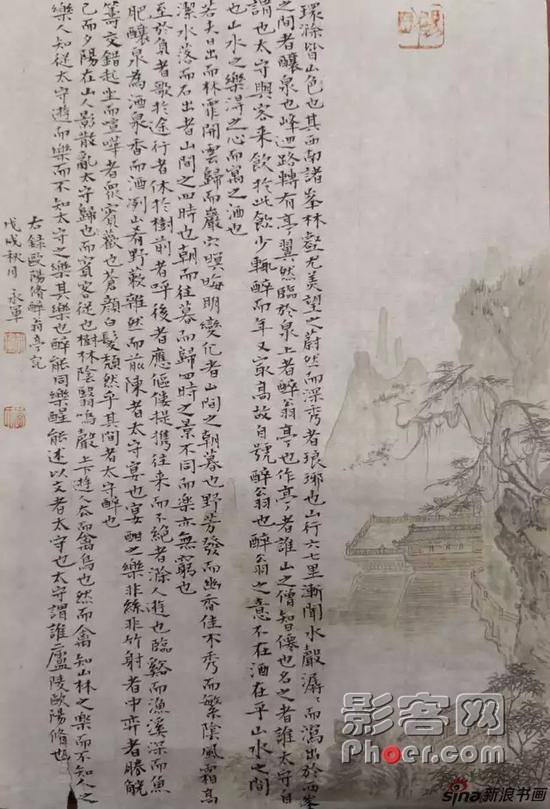 環滁皆山色也其西南諸峯林壑尤美望之蔚然而深秀者琅琊也山行六七里漸聞水聲潺〻而瀉出於两峯
之間者釀泉也峰迴路轉有亭翼然臨於泉上者醉翁亭也作亭者誰山之僧智僊也名之者誰太守自
謂也太守與客来飲於此飲少輒醉而年又㝡高故自號醉翁也醉翁之意不在酒在乎山水之間
也山水之樂得之心而寓之酒也
若夫日出而林霏開雲歸而巖穴暝晦明變化者山間之朝暮也野芳發而幽香佳木秀而繁陰風霜高
潔水落而石出者山間之四時也朝而往暮而歸四時之景不同而樂亦無窮也
至於負者歌於途行者休於樹前者呼後者應傴僂提携往来而不絕者滁人遊也臨谿而漁溪深而魚
肥釀泉為酒泉香而酒洌山肴野蔌雜然而前陳者太守宴也宴酣之樂非絲非竹射者中弈者勝觥
籌交錯起坐而喧嘩者眾賓歡也蒼顏白髮頹然乎其間者太守醉也
已而夕陽在山人影散亂太守歸也而賓客從也樹林陰翳鳴聲上下遊人去而禽鳥也然而禽知山林之樂而不知人之
樂人知從太守遊而樂而不知太守之樂其樂也醉能同樂醒能述以文者太守也太守謂誰廬陵歐陽脩也
右録歐陽脩醉翁亭記
戊戌秋月永軍
影客网
Phoer.com
sina新浪书画